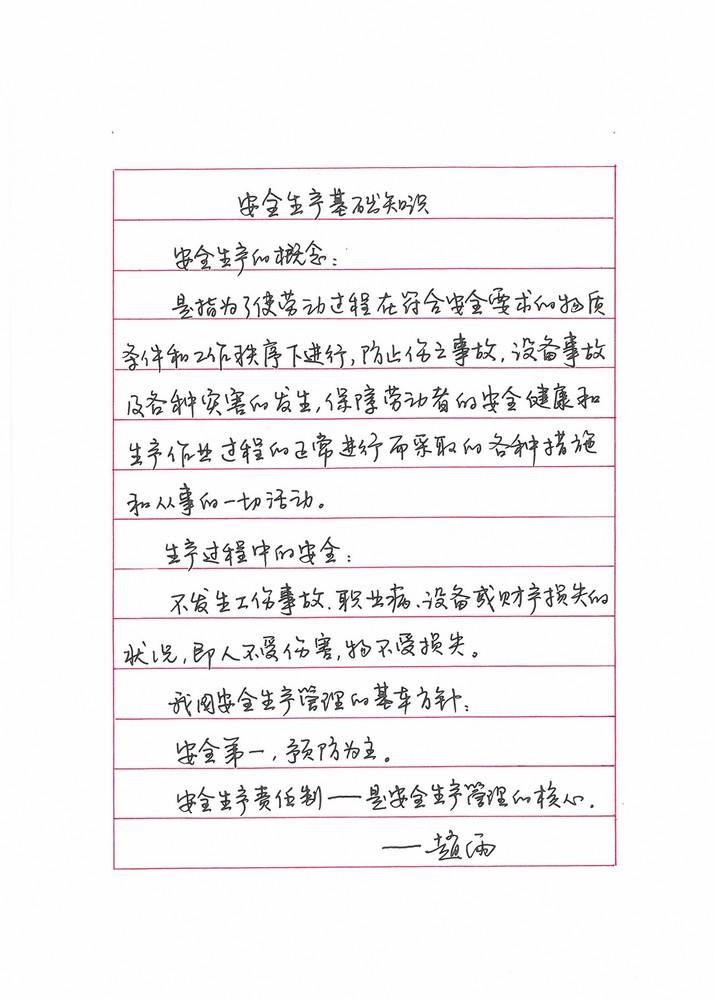 安全生产基础知识
安全生产的概念:
是指为了使劳动过程在符合安全要求的物质
条件和工作秩序下进行,防止伤亡事故、设备事故
及各种灾害的发生,保障劳动者的安全健康和
生产作业过程的正常进行而采取的各种措施
和从事的一切活动。
生产过程中的安全:
不发生工伤事故、职业病、设备或财产损失的
状况,即人不受伤害,物不受损失。
我国安全生产管理的基本方针:
安全第一,预防为主。
安全生产责任制——是安全生产管理的核心.
——赵雨